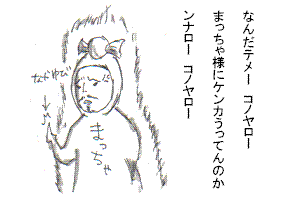 なんだテメー　コノヤロー
まっちゃ様にケンカうってんのか
ンナロー　コノヤロー
なかゆび
まっちゃ